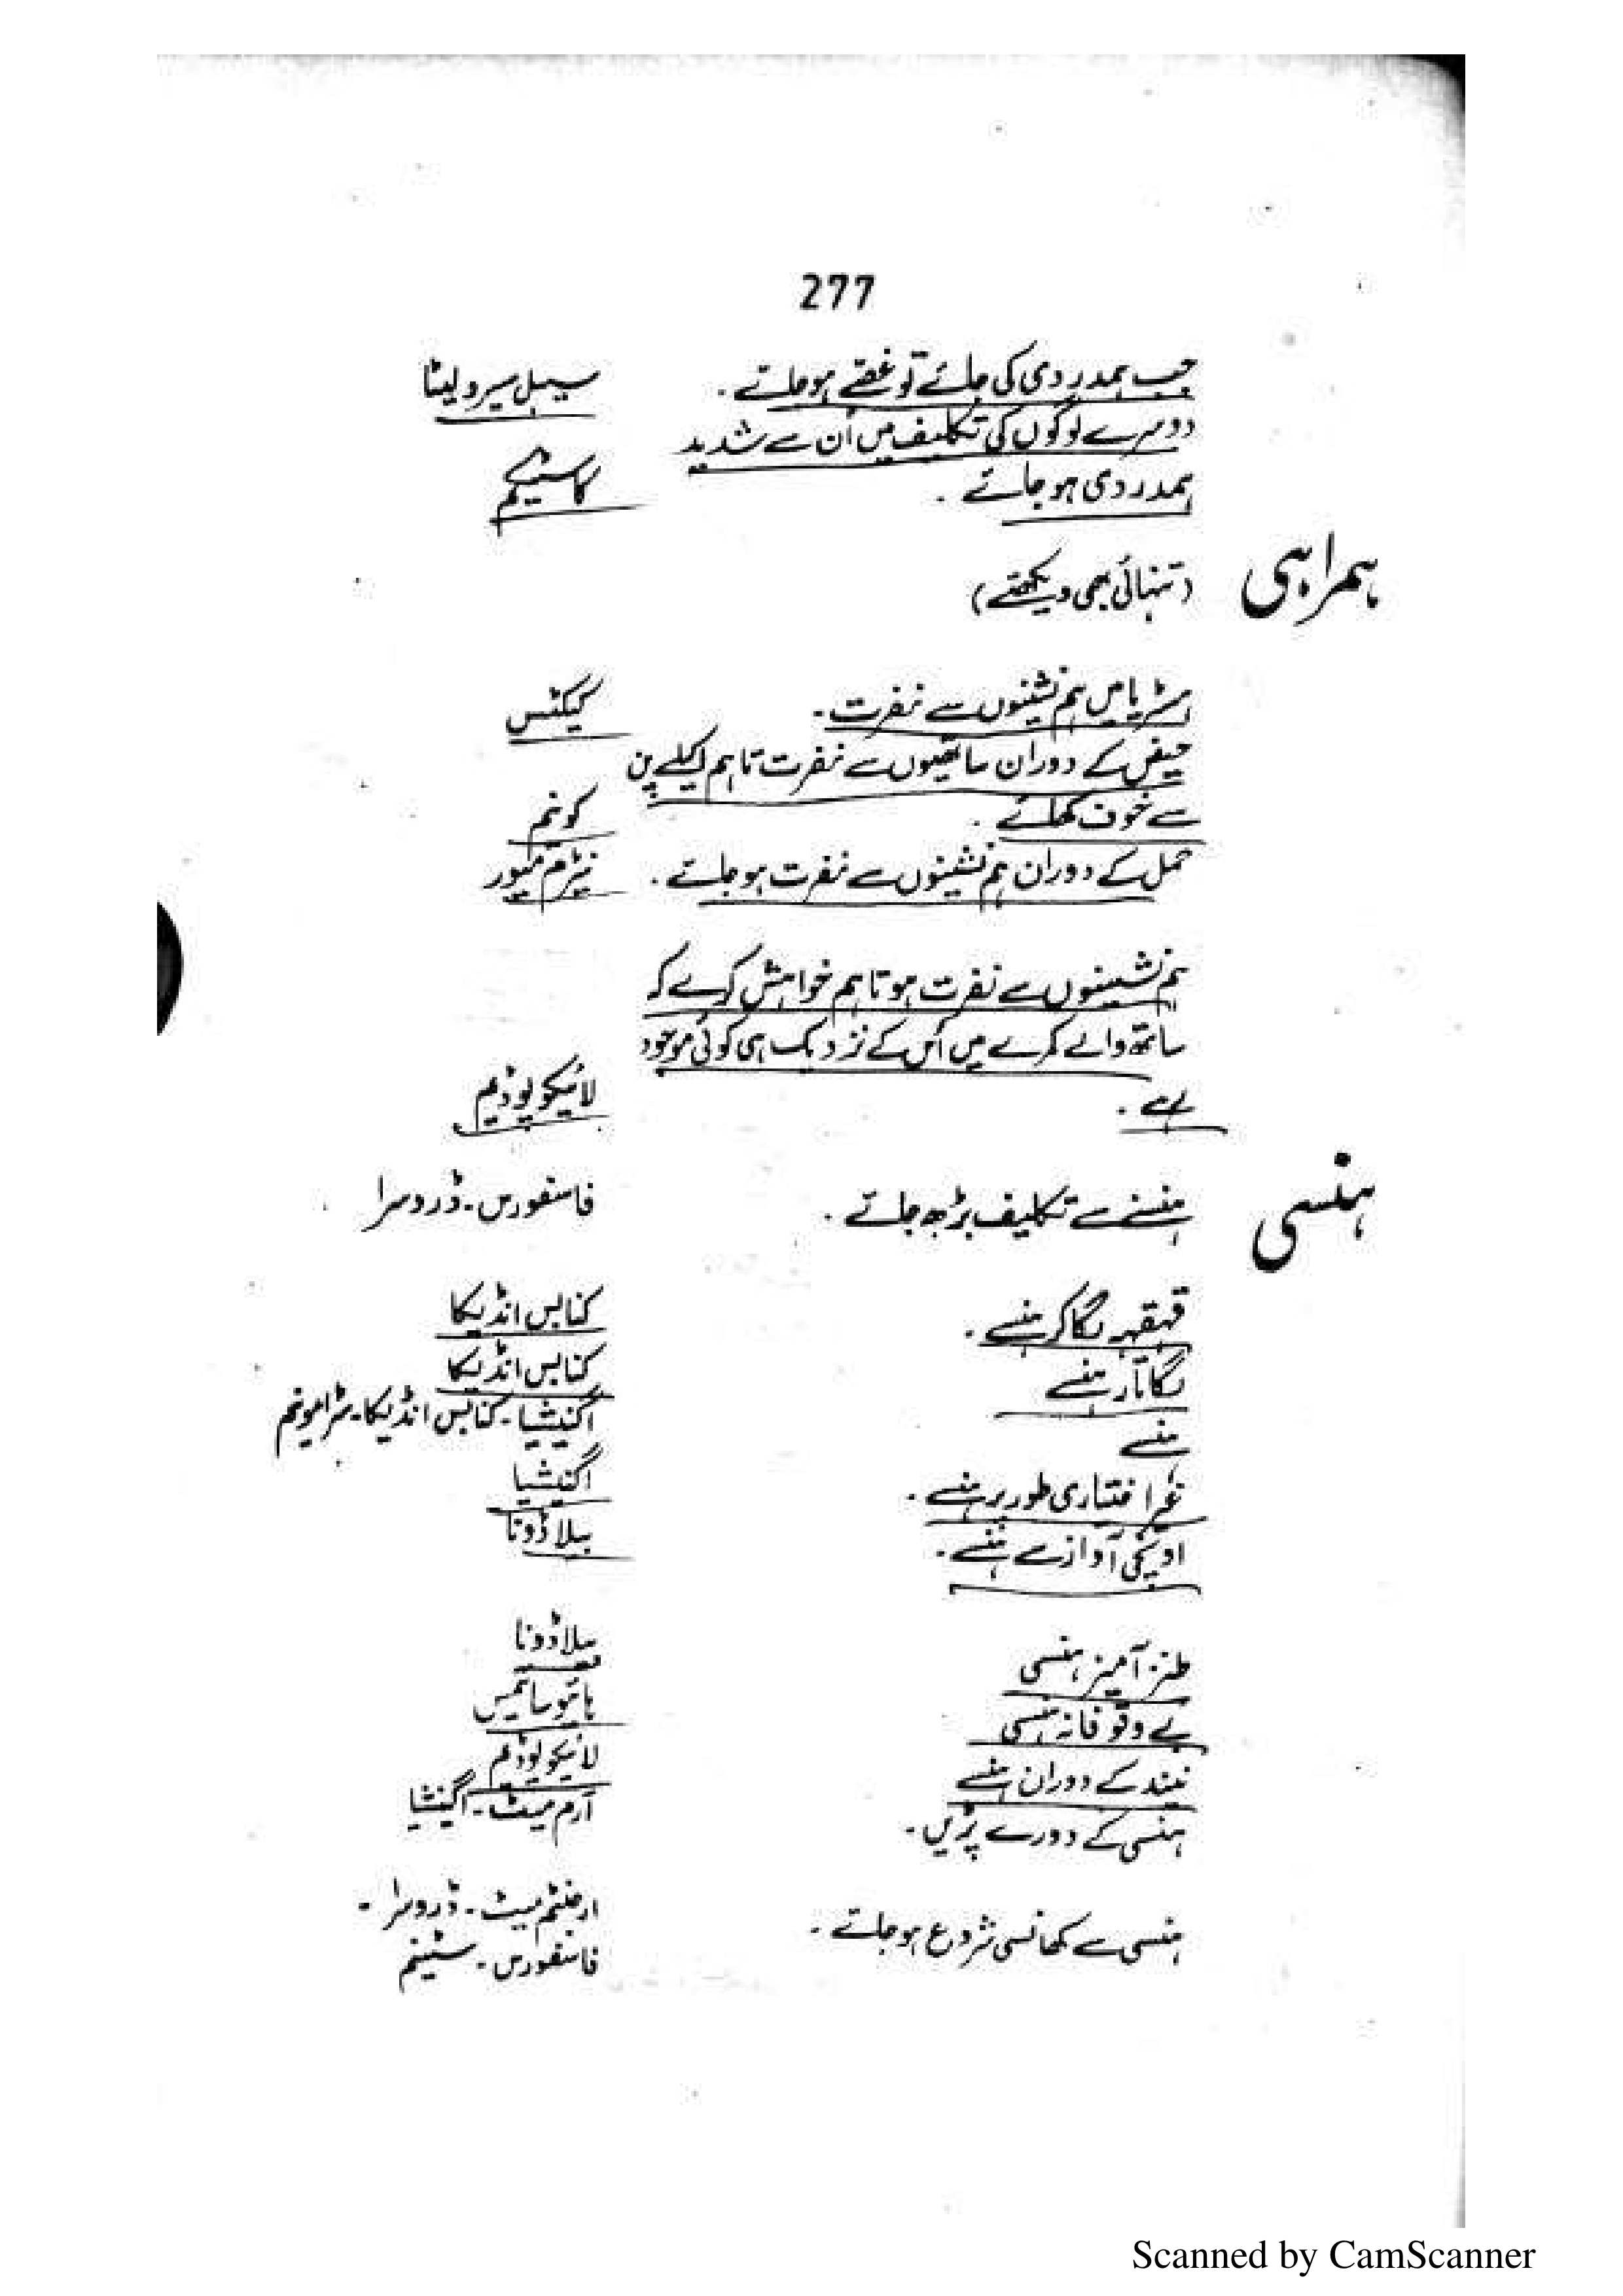 277
جب ہمدردی کی جائے تو غصے ہو جائے ۔ سیبل سیرولیٹا
دوسرے لوگوں کی تکلیف میں اُن سے شدید
ہمدردی ہو جائے ۔ کاسٹیکم
ہمراہی (تنہائی بھی دیکھئے)
ہسٹریا میں ہم نشینوں سے نفرت ۔ کیکٹس
حیض کے دوران ساتھیوں سے نفرت تاہم اکیلے پن
سے خوف کھائے ۔ کونیم
حمل کے دوران ہم نشینوں سے نفرت ہو جائے ۔ نیٹرم میور
ہم نشینوں سے نفرت ہو تاہم خواہش کرے کہ
ساتھ والے کمرے میں اُس کے نزدیک ہی کوئی موجود
ہے ۔ لائیکوپوڈیم
ہنسی ہنسنے سے تکلیف بڑھ جائے ۔ فاسفورس ۔ ڈروسرا
قہقہہ لگا کر ہنسے ۔ کنابس انڈیکا
لگاتار ہنسے کنابس انڈیکا
ہنسے اگنیشیا ۔ کنابس انڈیکا ۔ سٹرامونیم
غیر اختیاری طور پر ہنسے ۔ اگنیشیا
اونچی آواز سے ہنسے ۔ بیلاڈونا
طنز آمیز ہنسی بیلاڈونا
بے وقوفانہ ہنسی ہائیوسائمس
نیند کے دوران ہنسے لائیکوپوڈیم
ہنسی کے دورے پڑیں ۔ آرم میٹ ۔ اگنیشیا
ارجنٹم میٹ ۔ ڈروسرا ۔
ہنسی سے کھانسی شروع ہو جائے ۔ فاسفورس ۔ سٹینم
Scanned by CamScanner